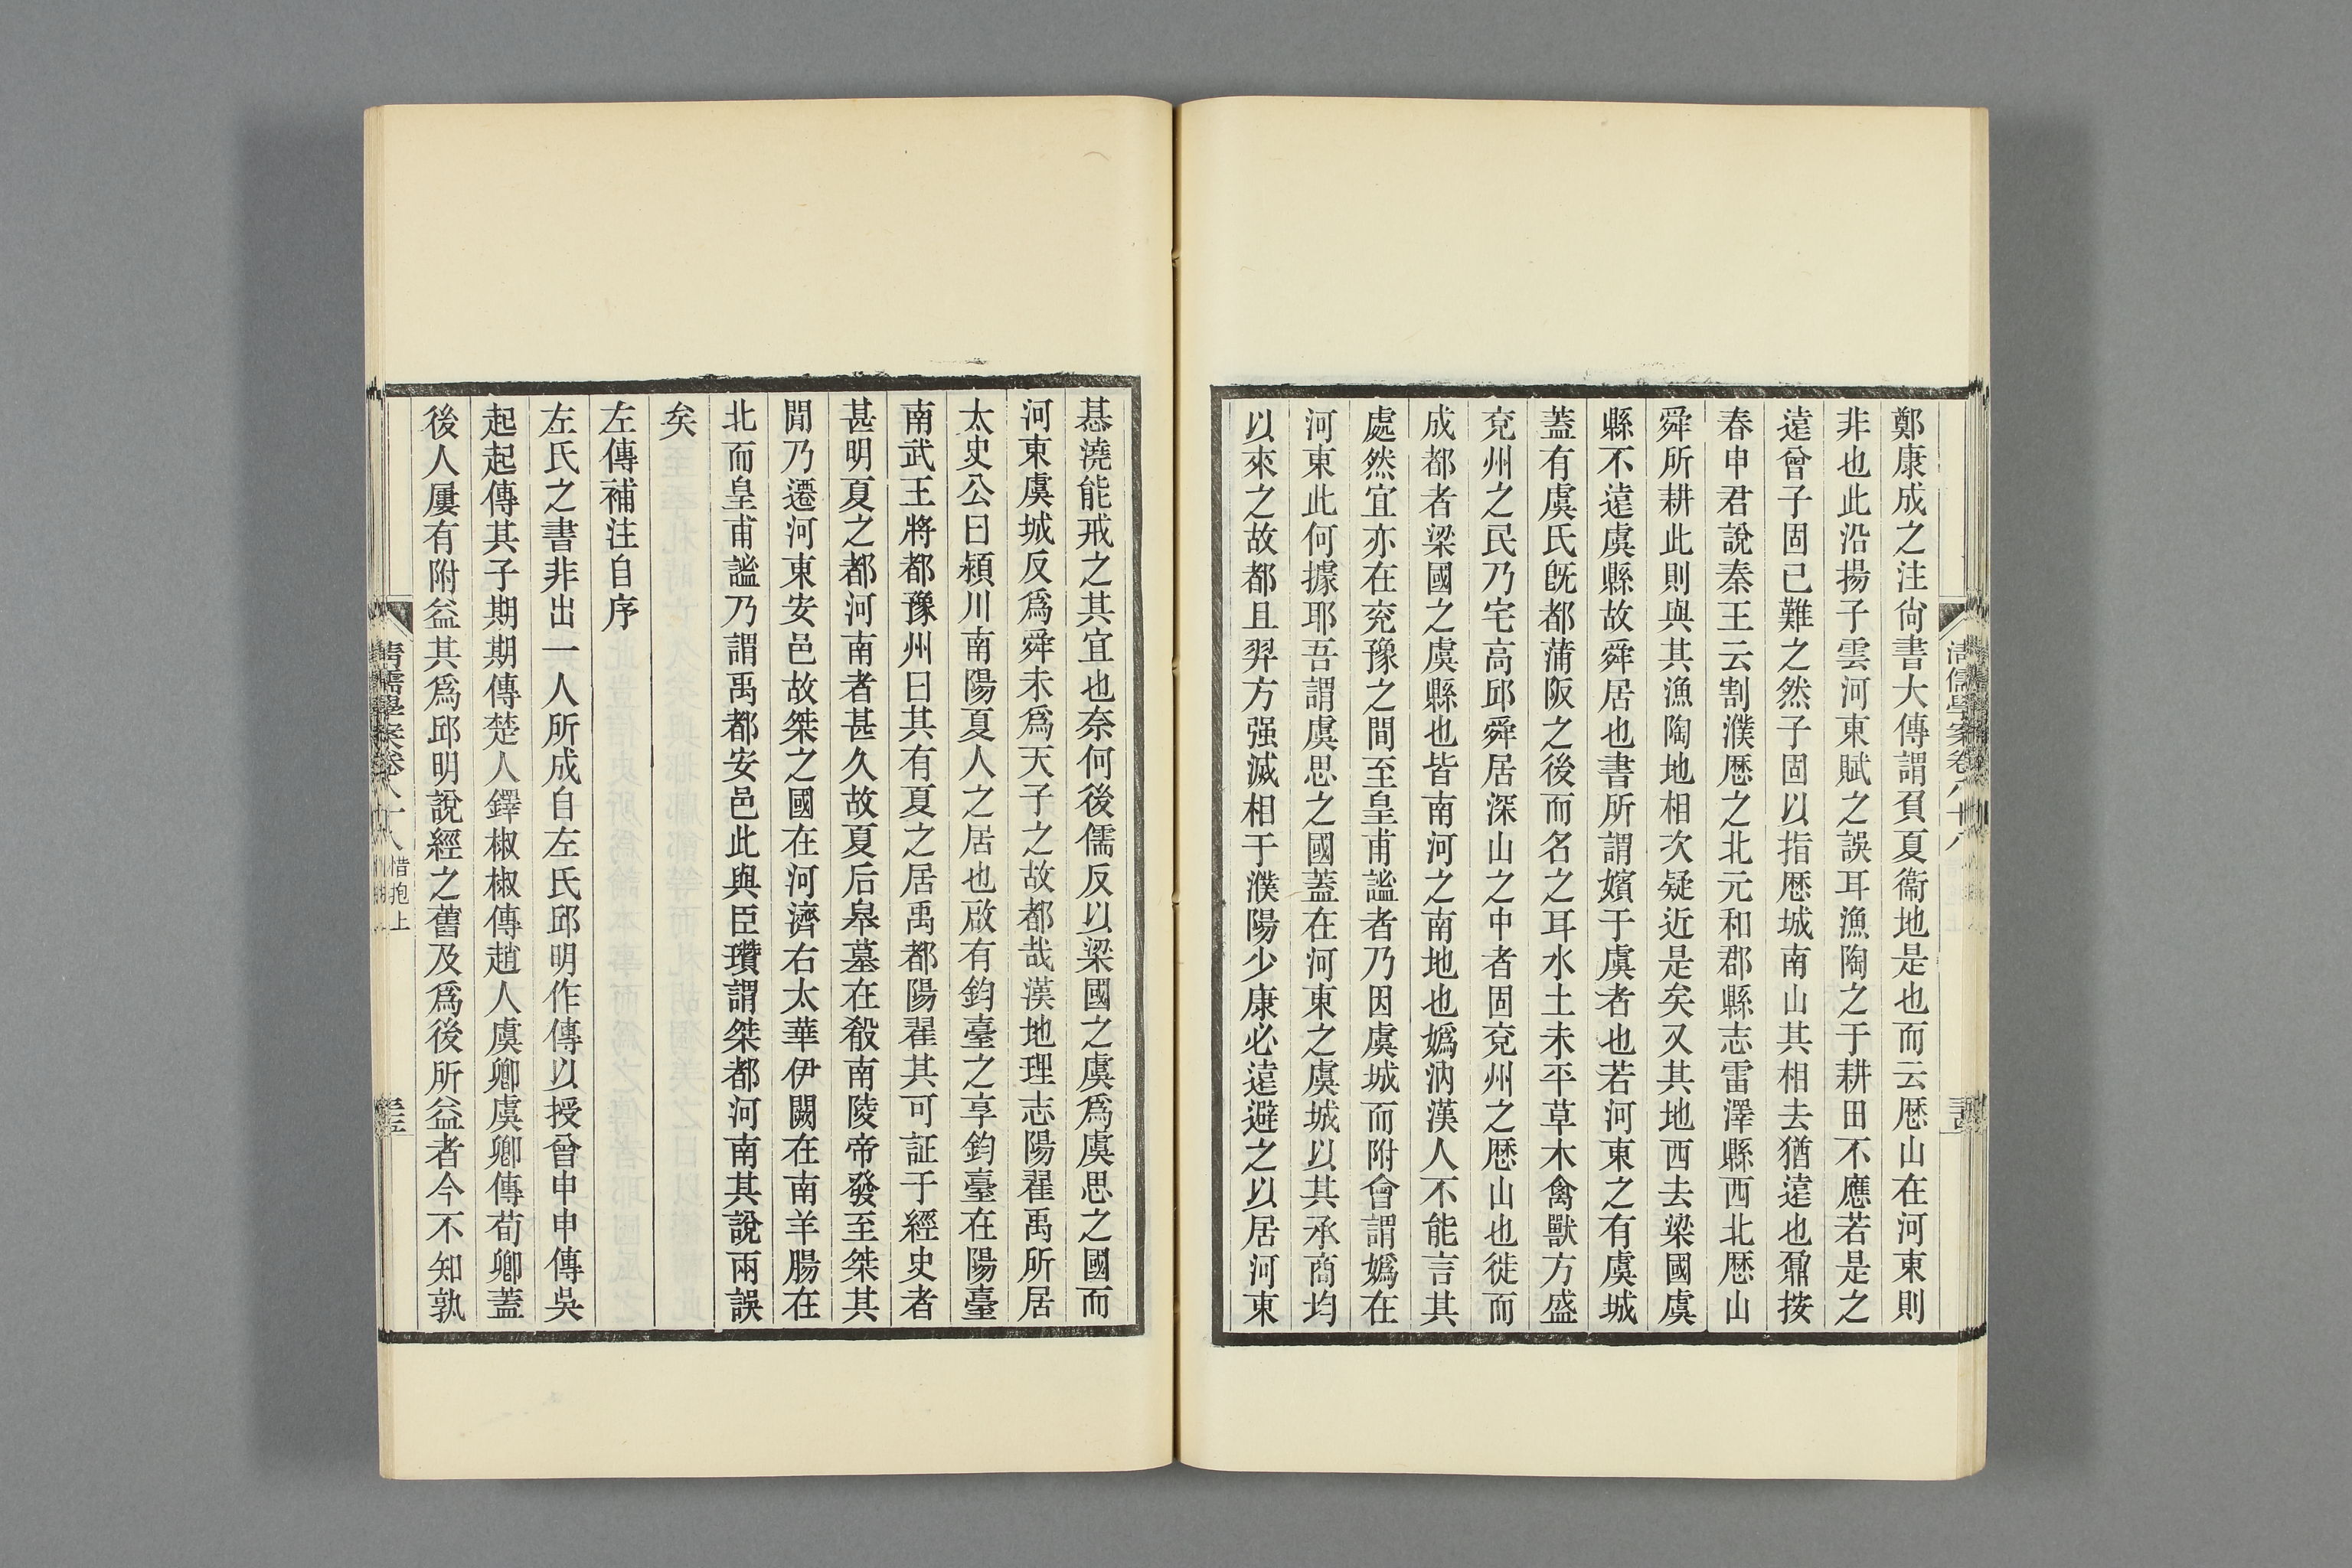 鄭康成之注尙書大傳謂負夏衞地是也而云厯山在河東則
非也此沿揚子雲河東賦之誤耳漁陶之于耕田不應若是之
遠曾子固已難之然子固以指厯城南山其相去猶遠也鼐按
春申君說秦王云割濮厯之北元和郡縣志雷澤縣西北厯山
舜所耕此則與其漁陶地相次疑近是矣又其地西去梁國虞
縣不遠虞縣故舜居也書所謂嬪于虞者也若河東之有虞城
蓋有虞氏旣都蒲阪之後而名之耳水土未平草木禽獸方盛
兗州之民乃宅高邱舜居深山之中者固兗州之厯山也徙而
成都者梁國之虞縣也皆南河之南地也嬀汭漢人不能言其
處然宜亦在兗豫之間至皇甫謐者乃因虞城而附會謂嬀在
河東此何據耶吾謂虞思之國蓋在河東之虞城以其承商均
以來之故都且羿方强滅相于濮陽少康必遠避之以居河東
惎澆能戒之其宜也奈何後儒反以梁國之虞爲虞思之國而
河東虞城反爲舜未爲天子之故都哉漢地理志陽翟禹所居
太史公曰潁川南陽夏人之居也啟有鈞臺之享鈞臺在陽臺
南武王將都豫州曰其有夏之居禹都陽翟其可証于經史者
甚明夏之都河南者甚久故夏后皋墓在殽南陵帝發至桀其
閒乃遷河東安邑故桀之國在河濟右太華伊闕在南羊腸在
北而皇甫謐乃謂禹都安邑此與臣瓚謂桀都河南其說兩誤
矣
左傳補注自序
左氏之書非出一人所成自左氏邱明作傳以授曾申申傳吳
起起傳其子期期傳楚人鐸椒椒傳趙人虞卿虞卿傳荀卿蓋
後人屢有附益其爲邱明說經之舊及爲後所益者今不知孰
清儒學案卷八十八 惜抱上